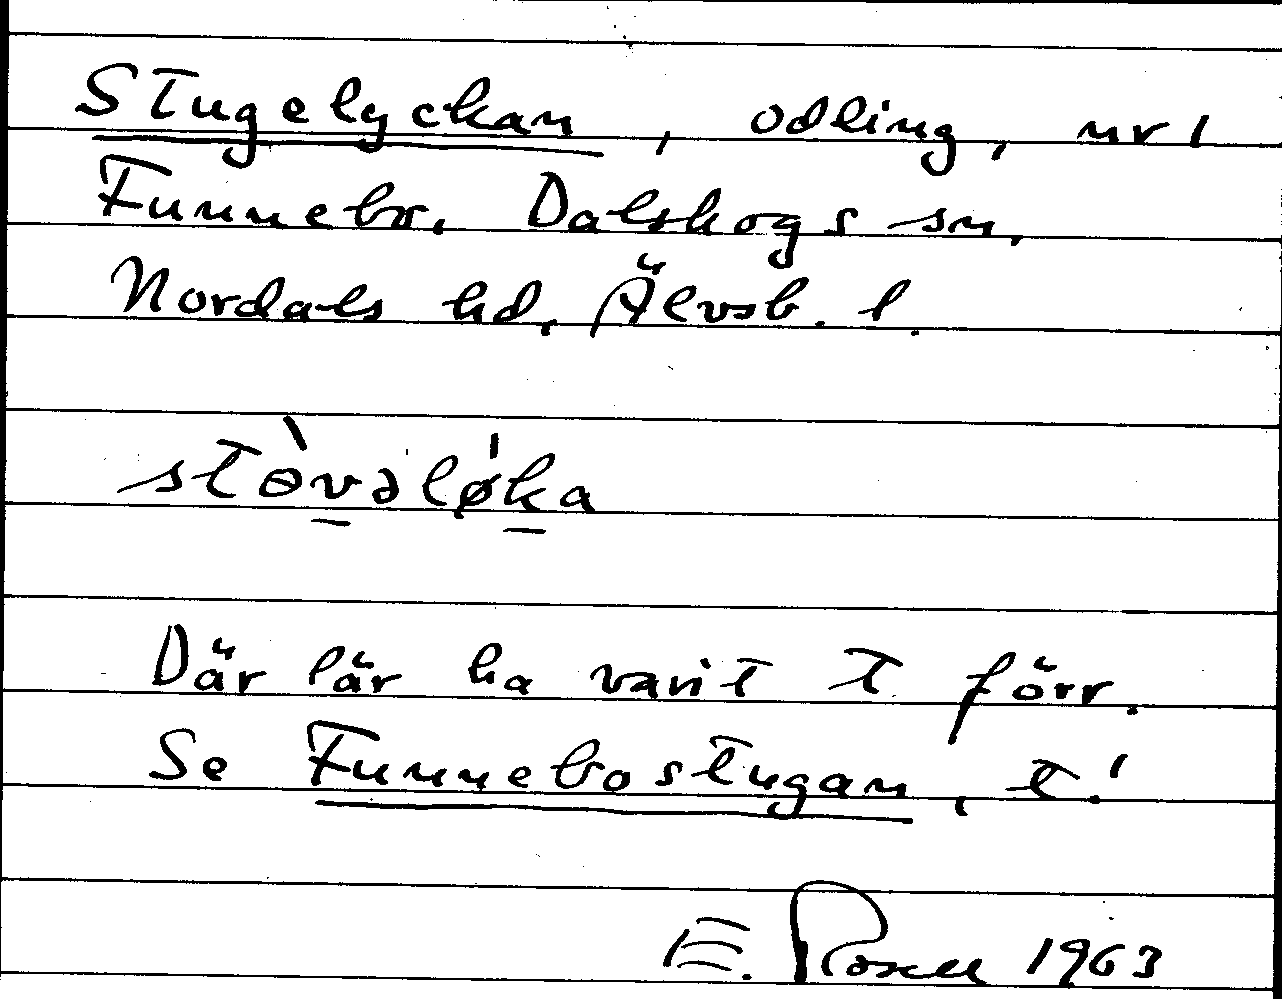 Stugelyckan, odling, nr 1
Funnebo. Dalskogs sn,
Nordals hd, Älvsb. l.
stòvəlø̍ka
Där lär ha varit t förr.
Se Funnebostugan, t.!
E. Rosell 1963